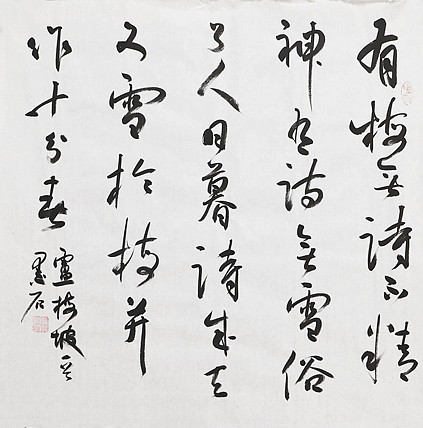 有梅无詩不精
神有詩无雪俗
了人日暮詩成天
又雪於梅并
作十分春
盧梅坡
墨石